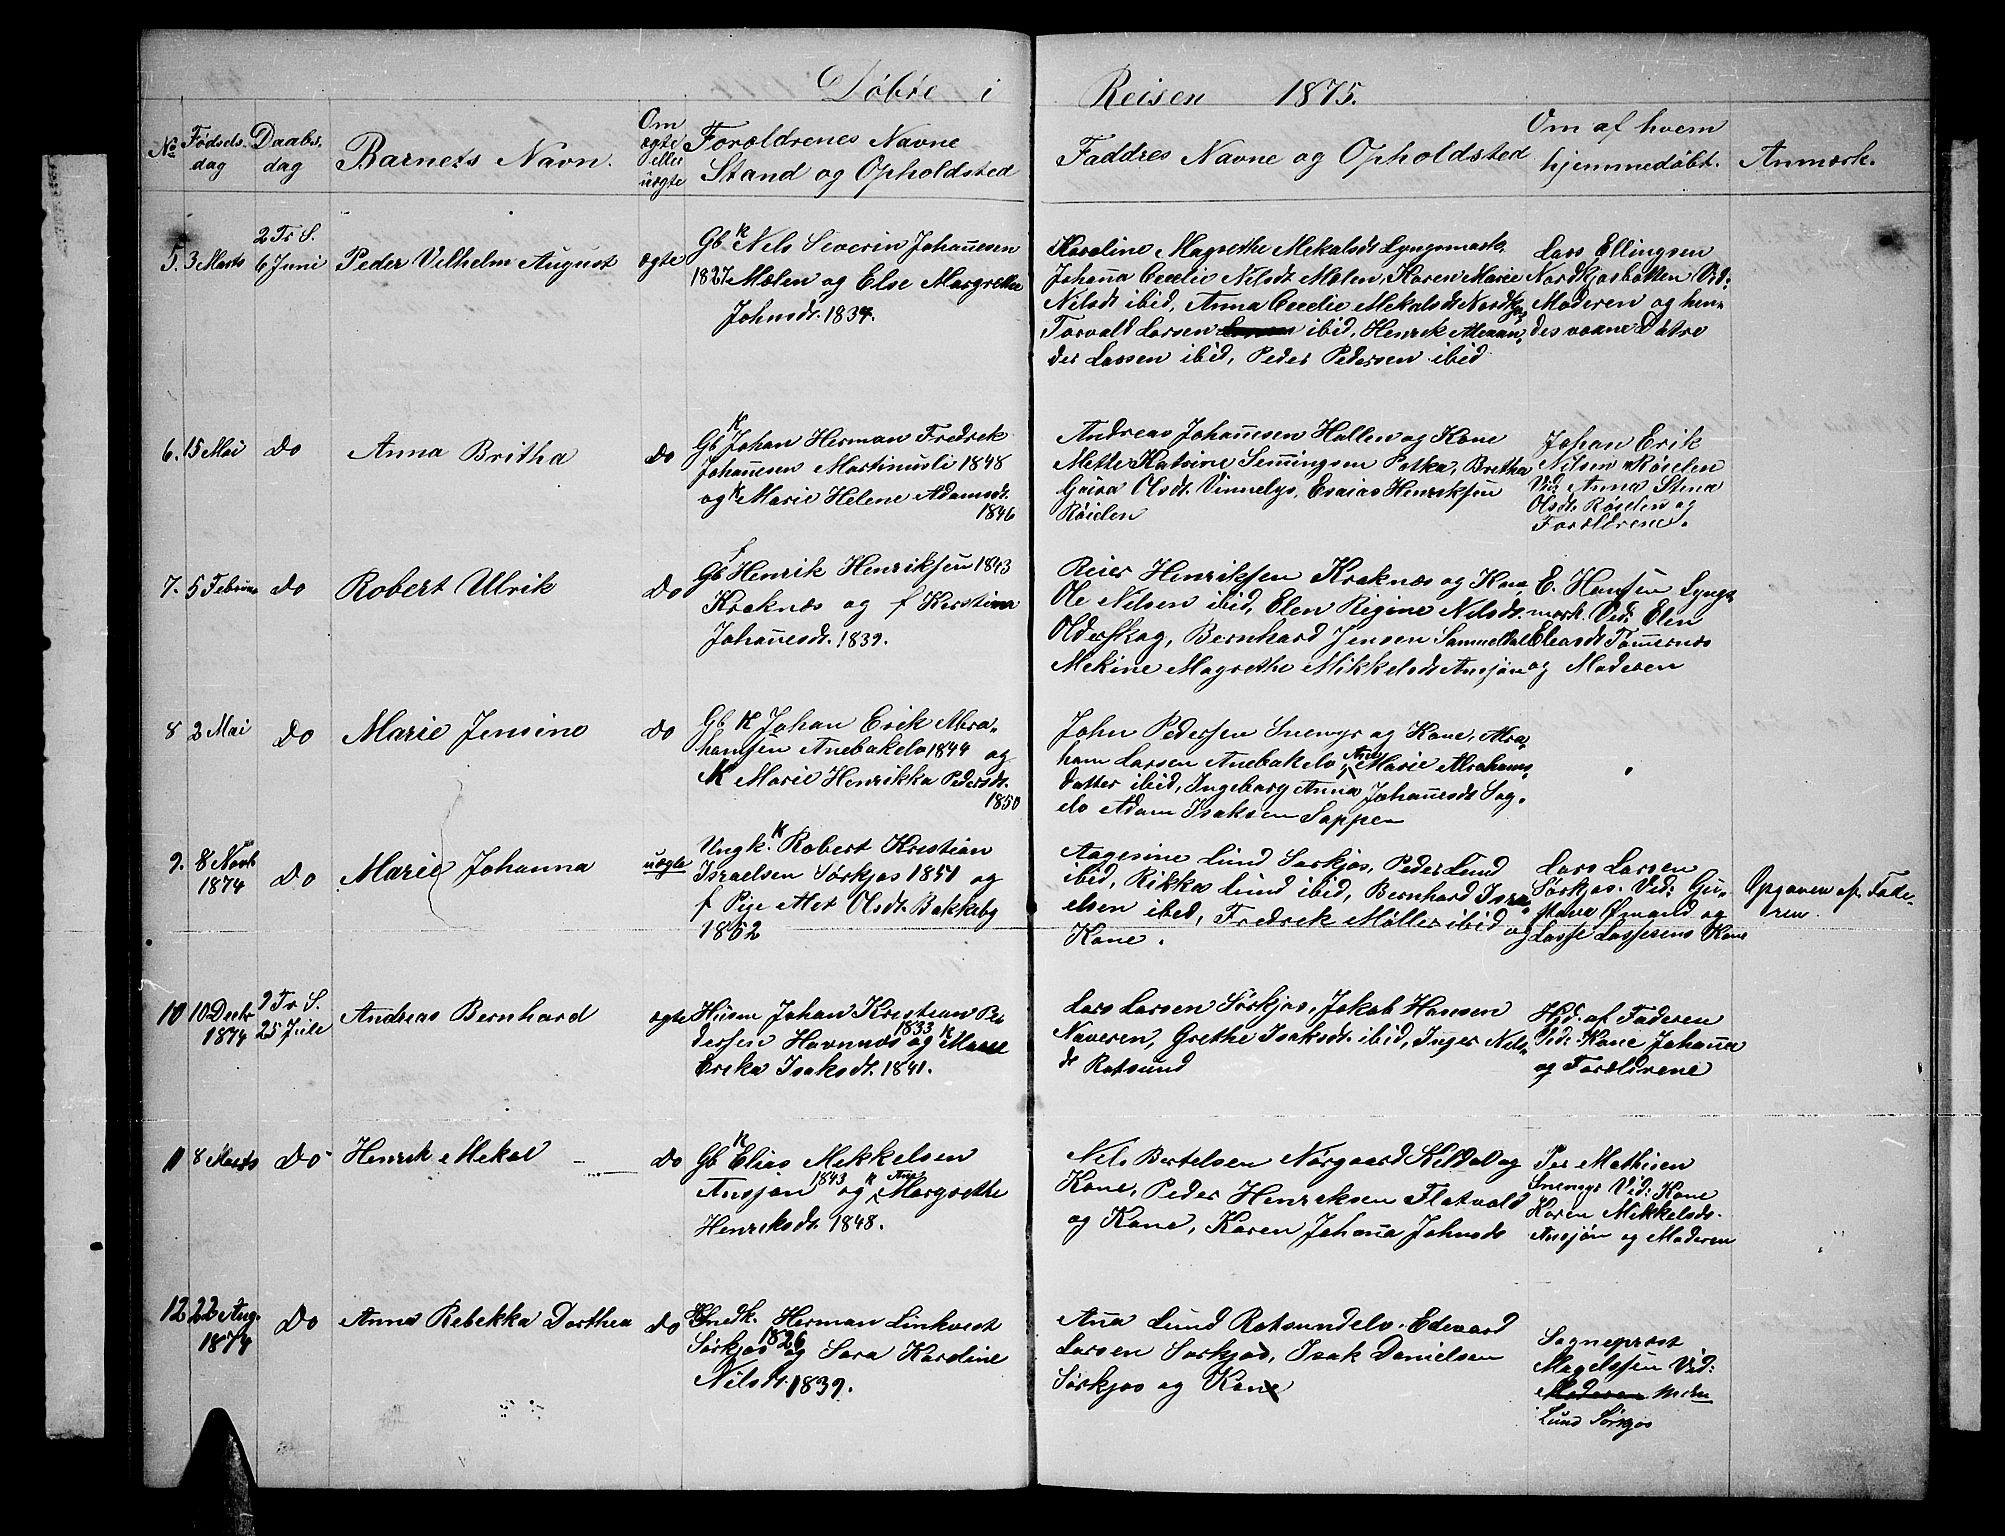 Døbte i Reisen 1875.
No Fødsels- dag
Daabs- dag
Barnets Navn.
Om ægte eller uægte
Forældrenes Navne
Stand og Opholdsted
Faddres Navne og Opholdsted
Om af hvem
hjemmedøbt.
Anmærk.
5. 3 Marts
2 Tr S.
6 Juni
Peder Vilhelm August
ægte
Gb. K Nils Severin Johannesen
1827 Molen og Else Margrethe
Johnsdt. 1834.
Karoline Magrethe Mekalsdt Lyngsmark,
Johanna Cecelie Nilsdt Molen, Karen Marie
Nilsdt ibid, Anna Cecelie Mekalsdt
Torvald Larsen ibid, Henrik Alexan-
der Lassen ibid, Peder Pedersen ibid
Lars Ellingsen
Nordkjosbotten Vid:
Moderen og hen-
des voxne Døtre
6. 15 Mai
Do
Anna Britha
Do
Gb K Johan Herman Fredrek
Johannesen Martinusli 1848
og K Marie Helene Adamsdt.
1846
Andreas Johannesen Hallen og Kone
Mette Katrine Semmingsen Potka, Bretha
Olsdt. Vinnelys, Esaias Henriksen
Røielen
Johan Erik
Nilsen Røielen
Vid: Anna Stina
Olsdt. Røielen og
Forældrene.
7. 5 Februar
Do
Robert Ulrik
Do
Gb f Henrik Henriksen 1843
Kraknæs og f Kerstina
Johannesdt. 1839.
Reier Henriksen Kraknæs og Kone,
Ole Nilsen ibid, Elen Rigine Nilsdt.
Olderskog, Bernhard Jensen Samueldal
Mekine Magrethe Mikkelsdt Ansjøn
E. Hansen Lyngs
mark. Vid: Elen
Eleasdt Tømernæs
og Moderen
8 2 Mai
Do
Marie Jensine
Do
Gb K Johan Erik Abra-
hamsen Anebakelv 1844 og
K Marie Henrikka Pedersdt.
1850
John Pedersen Snemyr og Kone, Abra-
ham Larsen Anebakelv Ane Marie Abrahams-
datter ibid, Ingeborg Anna Johannesdt Sag-
elv Adam Isaksen Sappen
9. 8 Novb
1874
Do
Marie Johanna
uægte
Ungk. K Robert Kristian
Israelsen Sørkjos 1851 og
f Pige Olsdt. Bakkeby
1852
Aagesine Lund Sørkjos, Peder Lund
ibid, Rikka Lund ibid, Bernhard Isra-
elsen ibid, Fredrek Møller ibid og
Kone.
Lars Larsen
Sørkjos. Vid: Gu-
stava og
Lasse Lassesens Kone
Opgaven af Fade-
ren.
10 10 Decbr
1874
9 Tr S.
25 Juli
Andreas Bernhard
ægte
Husm Johan Kristian Pe-
dersen Havnnæs 1833 og K Marie
Erika Isaksdt. 1841.
Lars Larsen Sørkjos, Jakob Hansen
Naveren, Grethe Isaksdt. ibid, Inger Nils-
dt Rotsund
Hjd. af Faderen
Vid: Kone Johanna
og Forældrene
11 8 Marts
Do
Henrik Mekal
Do
Gb K Elias Mekkelsen
Ansjøn 1843 og K Ane Margrethe
Henriksdt. 1848.
Nils Bertelsen Norgaard Kildal og
Kone, Peder Henriksen Flatvold
og Kone, Karen Johanna Johnsdt
Per Mathisen
Snemyr Vid: Kone
Karen Mikkelsdt.
Ansjøn og Moderen
12 22 Aug.
1874
Do
Anna Rebekka Dorthea
Do
Snedk. Herman Linkvest
Sørkjos 1826 og Sara Karoline
Nilsdt. 1839.
Anna Lund Rotsundelv. Edevard
Larsen Sørkjos, Isak Danielsen
Sørkjos og Kone
Sogneprest
Magelssen Vid:
Moderen
Lund Sørkjos